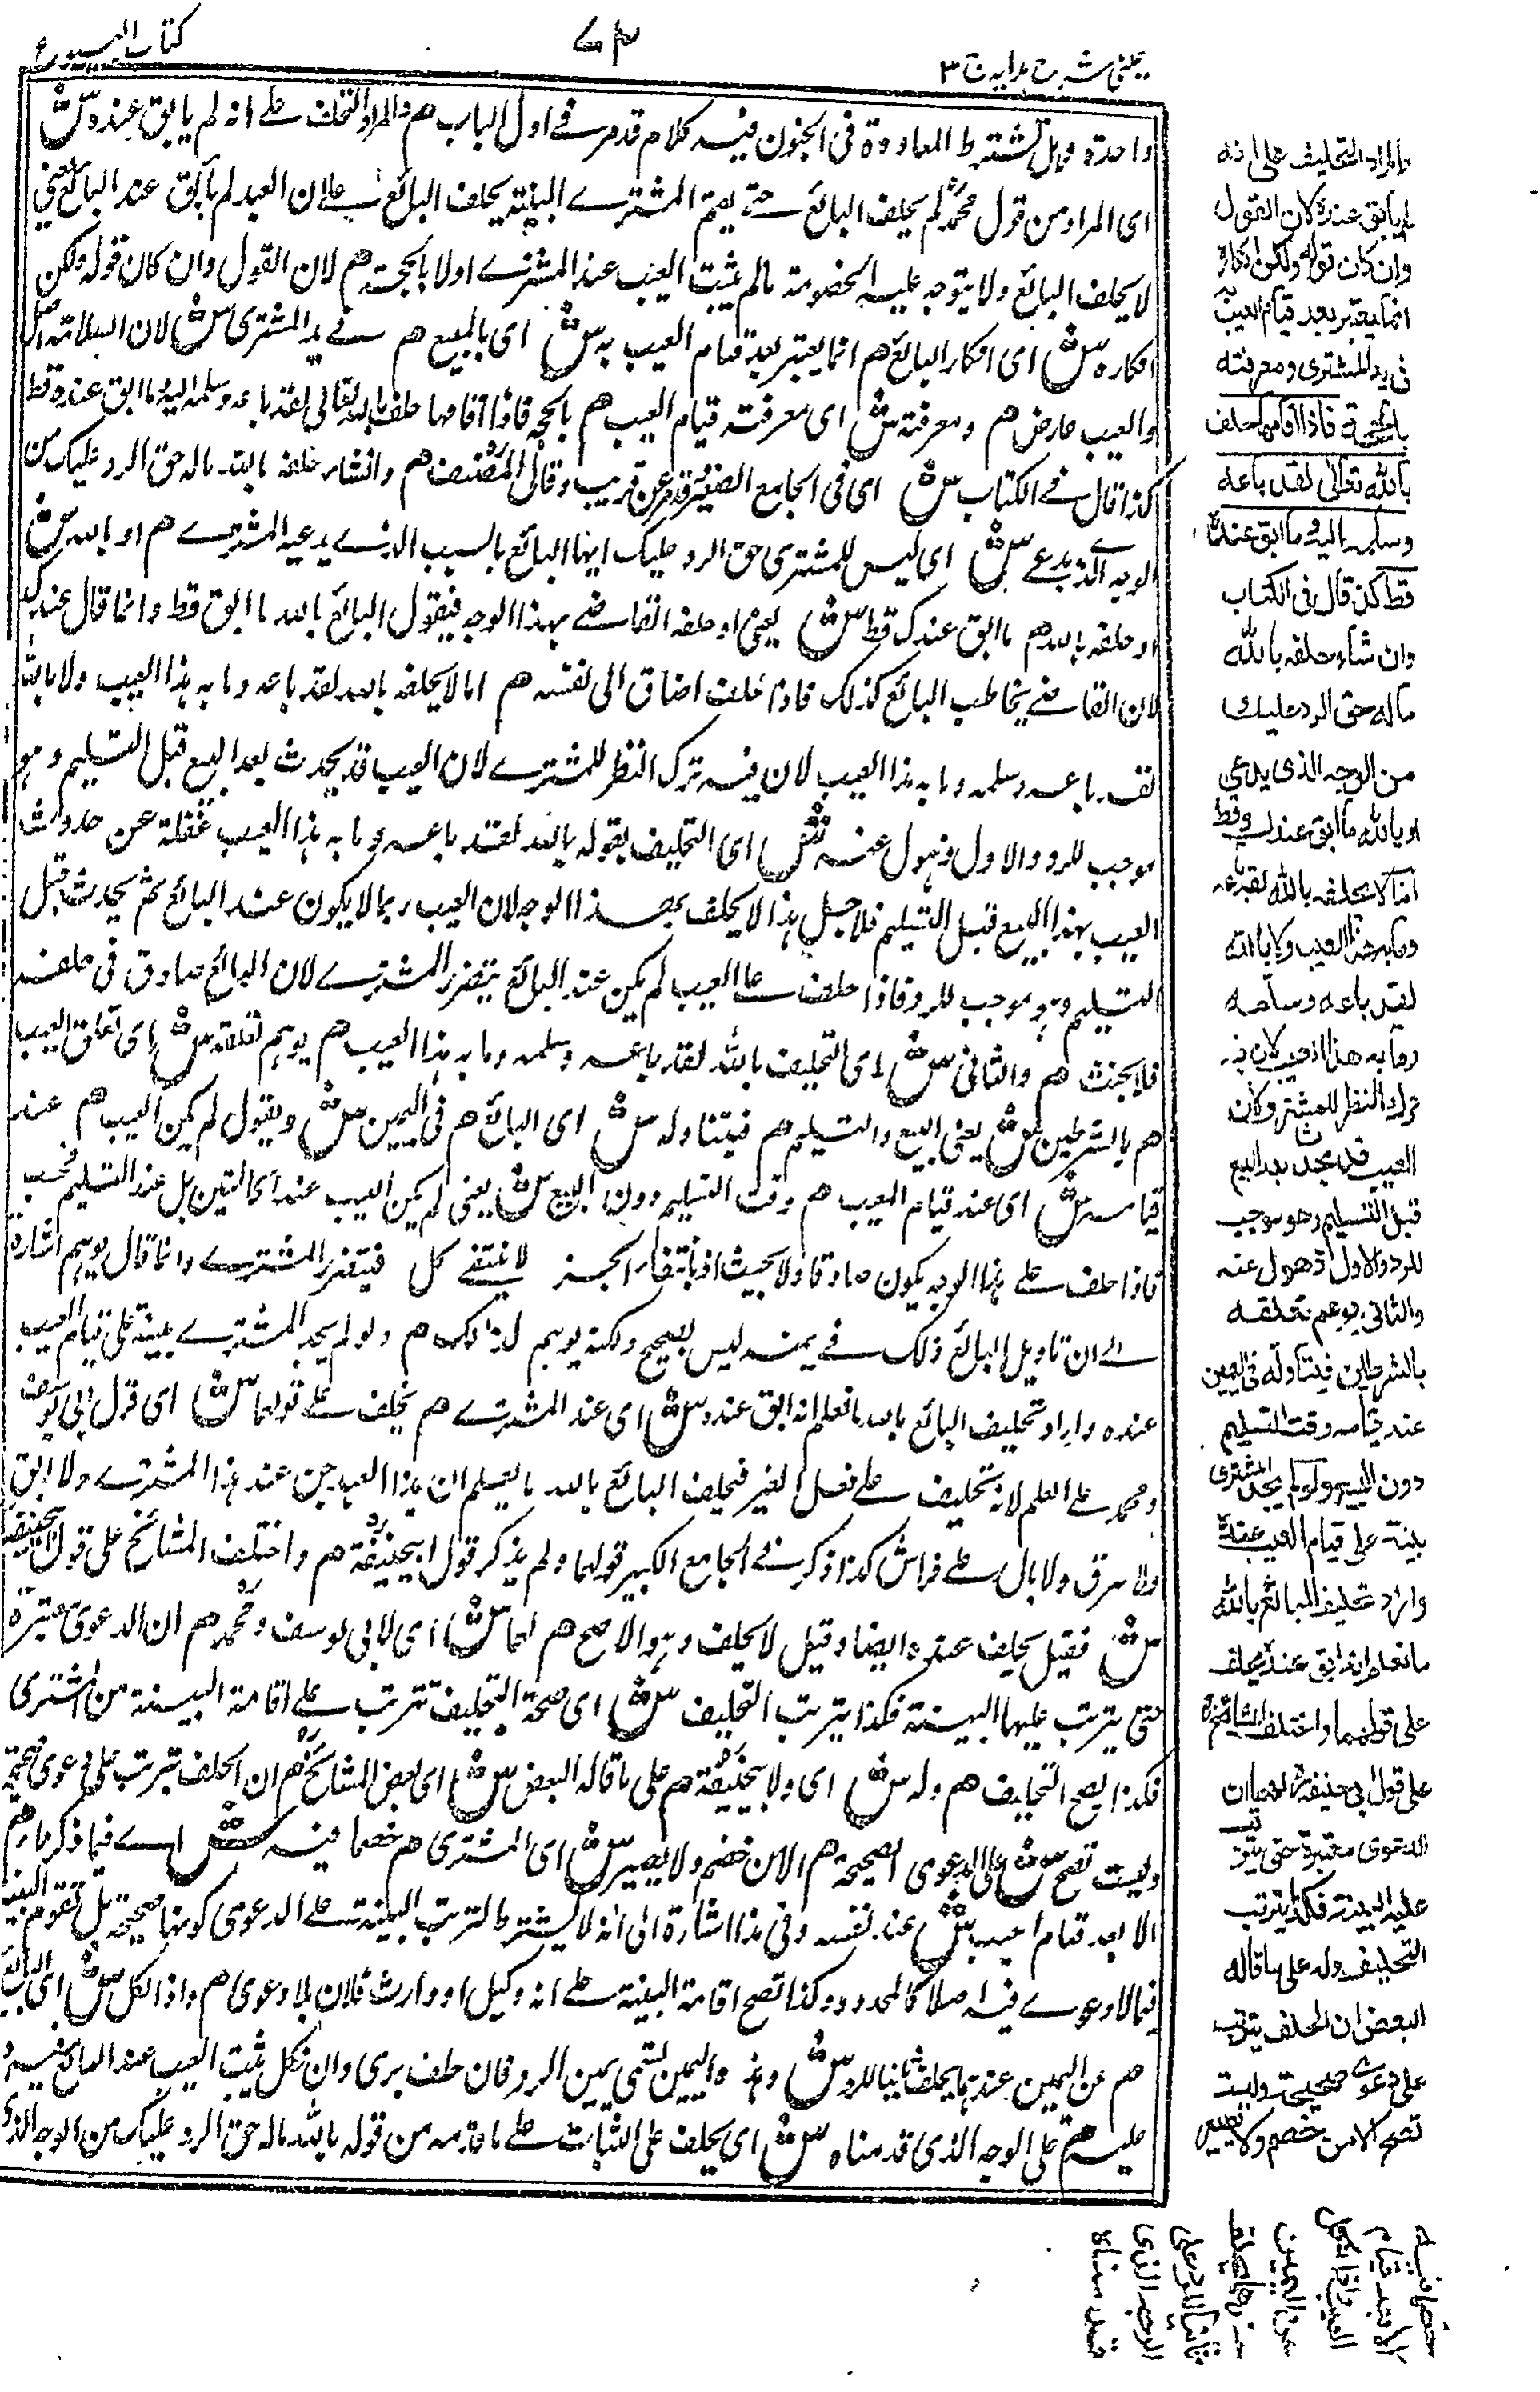 كتاب البيوع
٧٣
عینی شرح ہدایہ ج ٣
واحدة وہل تشترط المعاودة فى الجنون فيه كلام قد مر فے اول الباب هم والمراد التحلف علے انه لم يابق عنده ش
اى المراد من قول محمد لم يحلف البائع حتے يقيم المشترے البينة يحلف البائع علے ان العبد لم يأبق عند البائع يعنى
لا يحلف البائع ولا يتوجه عليه الخصومة مالم يثبت العيب عند المشترے اولا بالحجة هم لان القول وان كان قوله ولكن
انكاره ش اى انكار البائع هم انما يعتبر بعد قيام العيب به ش اى بالمبيع هم فے يد المشترى ش لان السلامة اصل
والعيب عارض هم ومعرفته ش اى معرفة قيام العيب هم بالحجة فاذا اقامها حلف بالله تعالى لقد باعه وسلمه اليه وما ابق عنده قط
كذا قال فے الكتاب ش اى فى الجامع الصغير قد مر عن قريب وقال المصنف هم وان شاء حلفه بالله ماله حق الرد عليك من
الوجه الذى يدعے ش اى ليس للمشترى حق الرد عليك ايها البائع بالسبب الذے يدعيه المشترے هم او بالله ش
او حلفه بالله هم ما ابق عندك قط ش يعنى او حلفه القاضے بهذا الوجه فيقول البائع بالله ما ابق قط وانما قال عندك
لان القاضے يخاطب البائع كذلك فاذا حلف اضاف الى نفسه هم اما لا يحلفه بالله لقد باعه وما به هذا العيب ولا بالله
لقد باعه وسلمه وما به هذا العيب لان فيه ترك النظر للمشترے لان العيب قد يحدث بعد البيع قبل التسليم وهو
موجب للرد والاول ذهول عنه ش اى التحليف بقوله بالله لقد باعه وما به هذا العيب غفلة عن حدوث
العيب بهذا البيع قبل التسليم فلاجل هذا لا يحلف بهذا الوجه لان العيب ربما لا يكون عند البائع ثم يحدث قبل
التسليم وهو موجب للرد فاذا حلف علے العيب لم يكن عند البائع يتضرر المشترے لان البائع صادق فى حلفه
فلا يحنث هم والثانى ش اى التحليف بالله لقد باعه وسلمه وما به هذا العيب هم يوهم تعلقه ش اى تعلق العيب
هم بالشرطين ش يعنى البيع والتسليم هم فيتناوله ش اى البائع هم فى اليمين ش ويقول لم يكن العيب هم عند
قيامه ش اى عند قيام العيب هم وقت التسليم دون البيع ش يعنى لم يكن العيب عند الحالتين بل عند التسليم فحسب
فاذا حلف علے هذا الوجه يكون صادقا ولا يحنث اذ بانتفاء الجزء لا ينتفے كل فيتضرر المشترے وانما قال يوهم اشارة
الے ان تاويل البائع ذلك فے يمينه ليس بصحيح ولكنه يوهم لذالك هم ولو لم يجد المشترے بينة على قيام العيب
عنده واراد تحليف البائع بالله ما نعلم انه ابق عنده ش اى عند المشترے هم يحلف علے قولهما ش اى قول ابى يوسف
ومحمد على العلم لانه تحليف علے فعل الغير فيحلف البائع بالله ما يعلم ان هذا العبد جن عند هذا المشترے ولا ابق
ولا سرق ولا بال علے فراش كذا ذكر فے الجامع الكبير قولهما ولم يذكر قول ابيحنيفة هم واختلف المشائخ على قول ابيحنيفة
ش فقيل يحلف عنده ايضا وقيل لا يحلف وهو الاصح هم لهما ش اى لابى يوسف ومحمد هم ان الدعوى معتبرة
حتى يترتب عليها البينة فكذا يترتب التحليف ش اى صحة التحليف تترتب علے اقامة البينة من المشترى
فكذا يصح التحليف هم وله ش اى ولابيحنيفة هم على ما قاله البعض ش اى بعض المشائخ هم ان الحلف تترتب على دعوى صحيحة
وليست تصح ش اى الدعوى الصحيحة هم الا من خصم ولا يصير ش اى المشترى هم خصما فيه ش اے فيما ذكرنا هم
الا بعد قيام العيب ش عند نفسه وفى هذا اشارة الى انه لا يشترط لترتب البينة علے الدعوى كونها صحيحة بل تقوم البينة
فيما لا دعوے فيه اصلا كالحدود وكذا تصح اقامة البينة علے انه وكيل او وارث فلان بلا دعوى هم واذا نكل ش اى البائع
هم عن اليمين عندهما يحلف ثانيا للرد ش وهذه اليمين تسمى يمين الرد فان حلف برى وان نكل ثبت العيب عند البائع فيرد
عليه هم على الوجه الذى قدمناه ش اى يحلف على الثبات علے ما قدمه من قوله بالله ماله حق الرد عليك من الوجه الذى
والمراد التحليف على انه
لم يأبق عنده لان القول
وان كان قوله ولكن انكاره
انما يعتبر بعد قيام العيب
فى يد المشترى ومعرفته
بالحجة فاذا اقامها حلف
بالله تعالى لقد باعه
وسلمه اليه وما ابق عنده
قط كذا قال فى الكتاب
وان شاء حلفه بالله
ماله حق الرد عليك
من الوجه الذى يدعى
او بالله ما ابق عندك قط
اما لا يحلفه بالله لقد باعه
وما به هذا العيب ولا بالله
لقد باعه وسلمه
وما به هذا العيب لان فيه
ترك النظر للمشترى لان
العيب قد يحدث بعد البيع
قبل التسليم وهو موجب
للرد والاول ذهول عنه
والثانى يوهم تعلقه
بالشرطين فيتناوله فى اليمين
عند قيامه وقت التسليم
دون البيع ولو لم يجد المشترى
بينة على قيام العيب عنده
واراد تحليف البائع بالله
ما نعلم انه ابق عنده يحلف
على قولهما واختلف المشائخ
على قول ابى حنيفة لهما ان
الدعوى معتبرة حتى يترتب
عليه البينة فكذا يترتب
التحليف وله على ما قاله
البعض ان الحلف يترتب
على دعوے صحيحة وليست
تصح الا من خصم ولا يصير
خصما فيه
الا بعد قيام
العيب واذا نكل
عن اليمين
عندهما يحلف
ثانيا للرد على
الوجه الذى
قدمناه